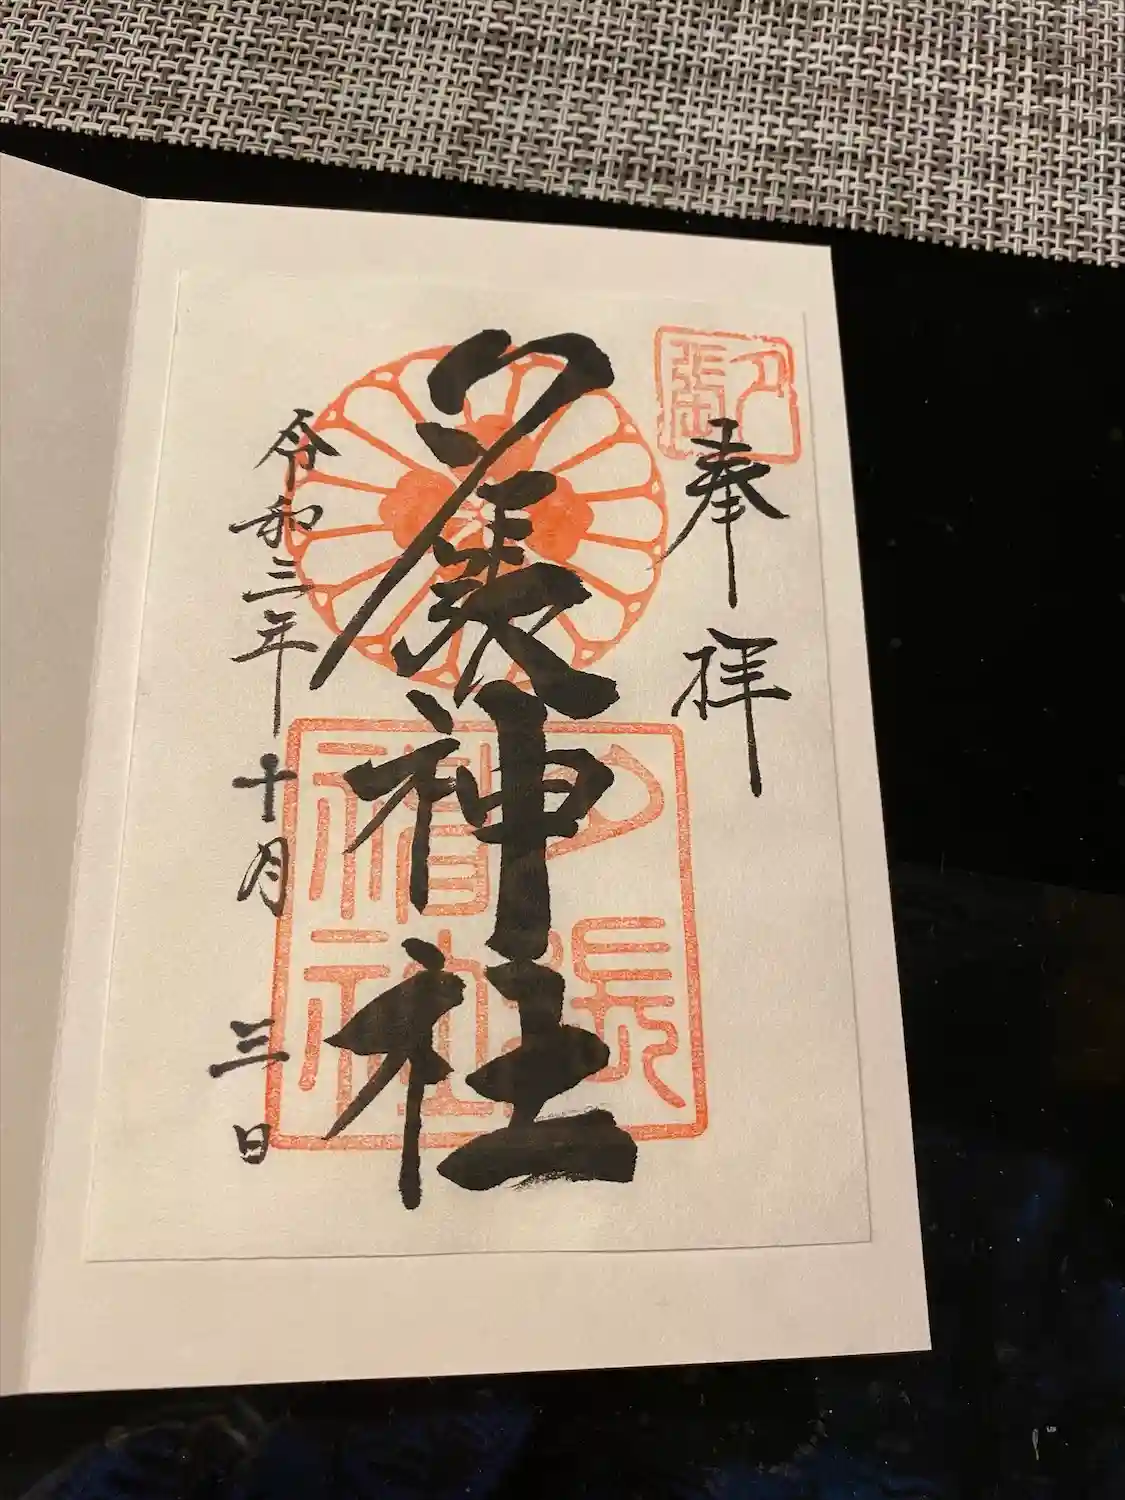 奉拝
夕張神社
令和三年十月三日
夕張
神社